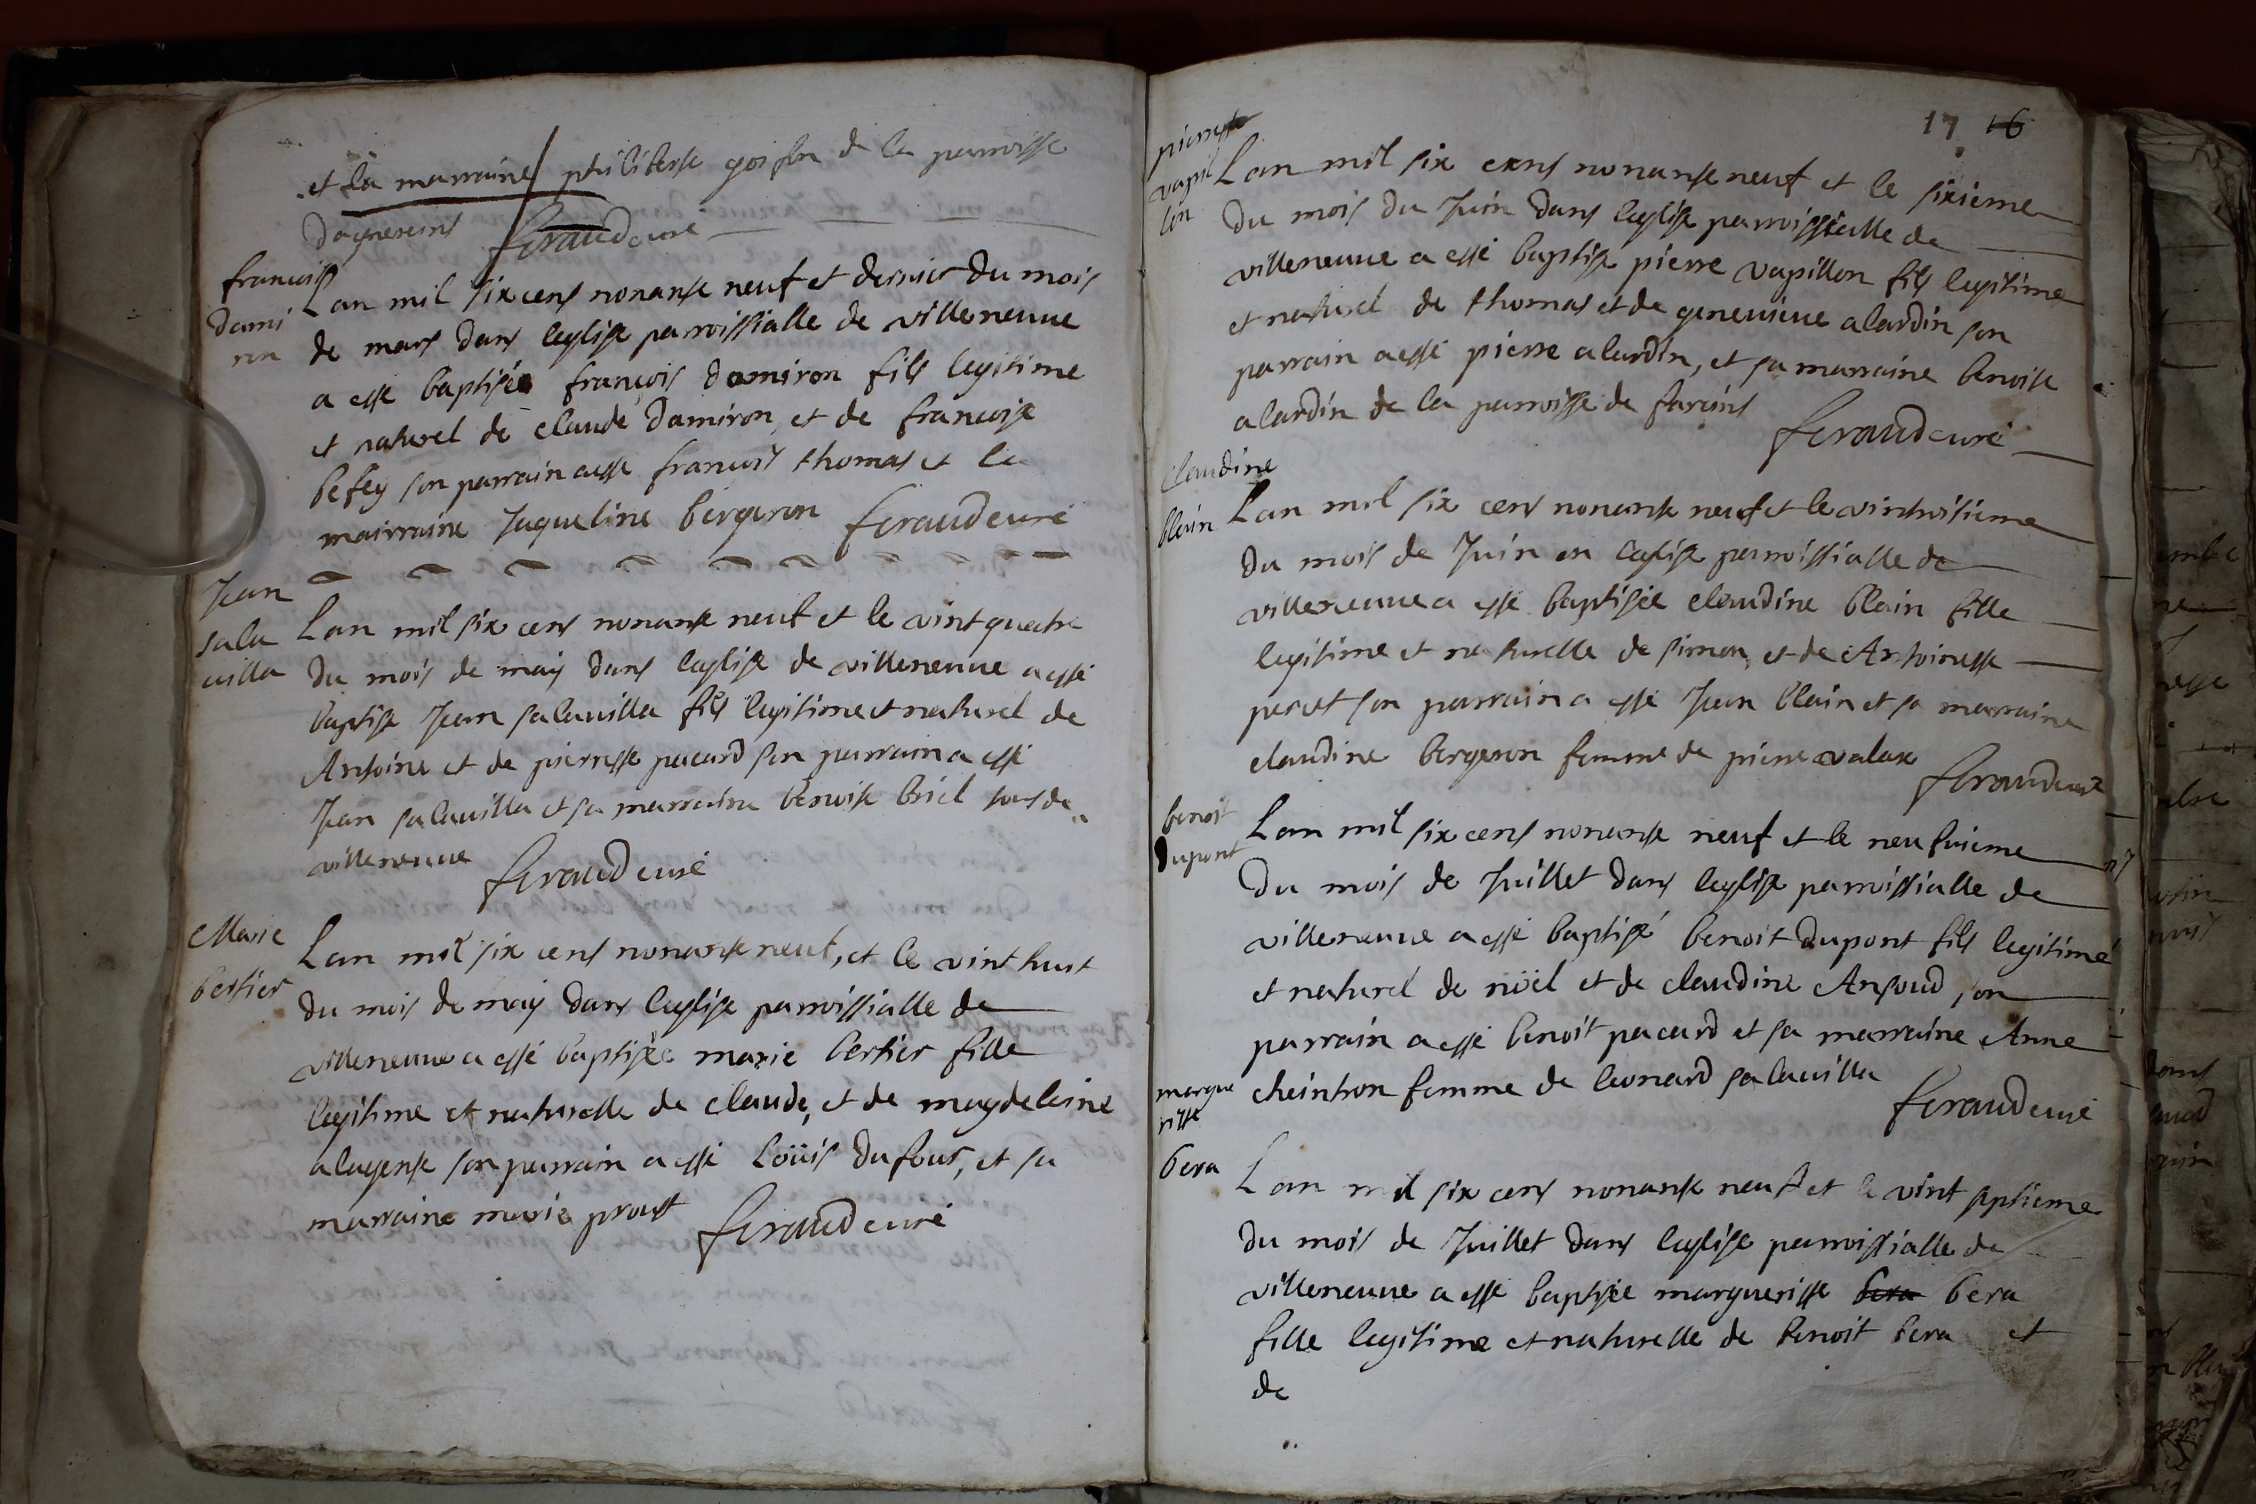 et la marraine philiberte goiffon de la parroisse
dagnereins feraud curé
francois
dami
ron
Lan mil six cens nonante neuf et dernier du mois
de mars dans leglise parroissialle de villeneuue
a esté baptisée françois damiron fils legitime
et naturel de claude damiron, et de francoise
befey son parrain a esté francois thomas et la
mairraine Jaqueline bergeron feraud curé
Jean
sala
uilla
Lan mil six cens nonante neuf et le vint quatre
du mois de may dans leglise de villeneuue a esté
baptise Jean salauilla fils legitime et naturel de
Antoine et de pierrette pacard son parrain a esté
Jean salauilla et sa marraine benoite briel tous de
villeneuue feraud curé
Marie
bertier
Lan mil six cens nonante neuf, et le vint huit
du mois de may dans leglise parroissialle de
villeneuue a esté baptisée marie bertier fille
legitime et naturelle de claude, et de magdeleine
alagente son parrain a esté Loüis dufour, et sa
marraine marie prost feraud curé
17 16
pierre
vapil
lon
Lan mil six cens nonante neuf et le sixieme
du mois du Juin dans leglise parroissialle de
villeneuue a esté baptise pierre vapillon fils legitime
et naturel de thomas et de geneuieue alardin son
parrain a esté pierre alardin, et sa marraine benoite
alardin de la parroisse de fareins feraud curé
Claudine
blain
Lan mil six cens nonante neuf et le vinthuitieme
du mois de Juin en leglise parroissialle de
villeneuue a esté baptisée claudine blain fille
legitime et naturelle de simon, et de Antoinette
peret son parrain a esté Jean blain et sa marraine
claudine bergeron femme de pierre valax
feraud curé
benoit
dupont
Lan mil six cens nonante neuf et le neufuieme
du mois de Juillet dans leglise parroissialle de
villeneuue a esté baptisé benoit dupont fils legitime
et naturel de noël et de claudine Ansoud, son
parrain a esté benoit pacard et sa marraine Anne
cheintron femme de leonard salauilla
feraud curé
margue
ritte
bera
Lan mil six cens nonante neuf et le vint septieme
du mois de Juillet dans leglise parroissialle de
villeneuue a esté baptisée margueritte bera bera
fille legitime et naturelle de benoit bera et
de